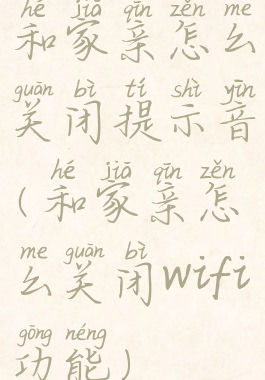 hé jiā qīn zěn me
和家亲怎么
guān bì tí shì yīn
关闭提示音
hé jiā qīn zěn
(和家亲怎
me guān bì
么关闭wifi
gōng néng
功能)